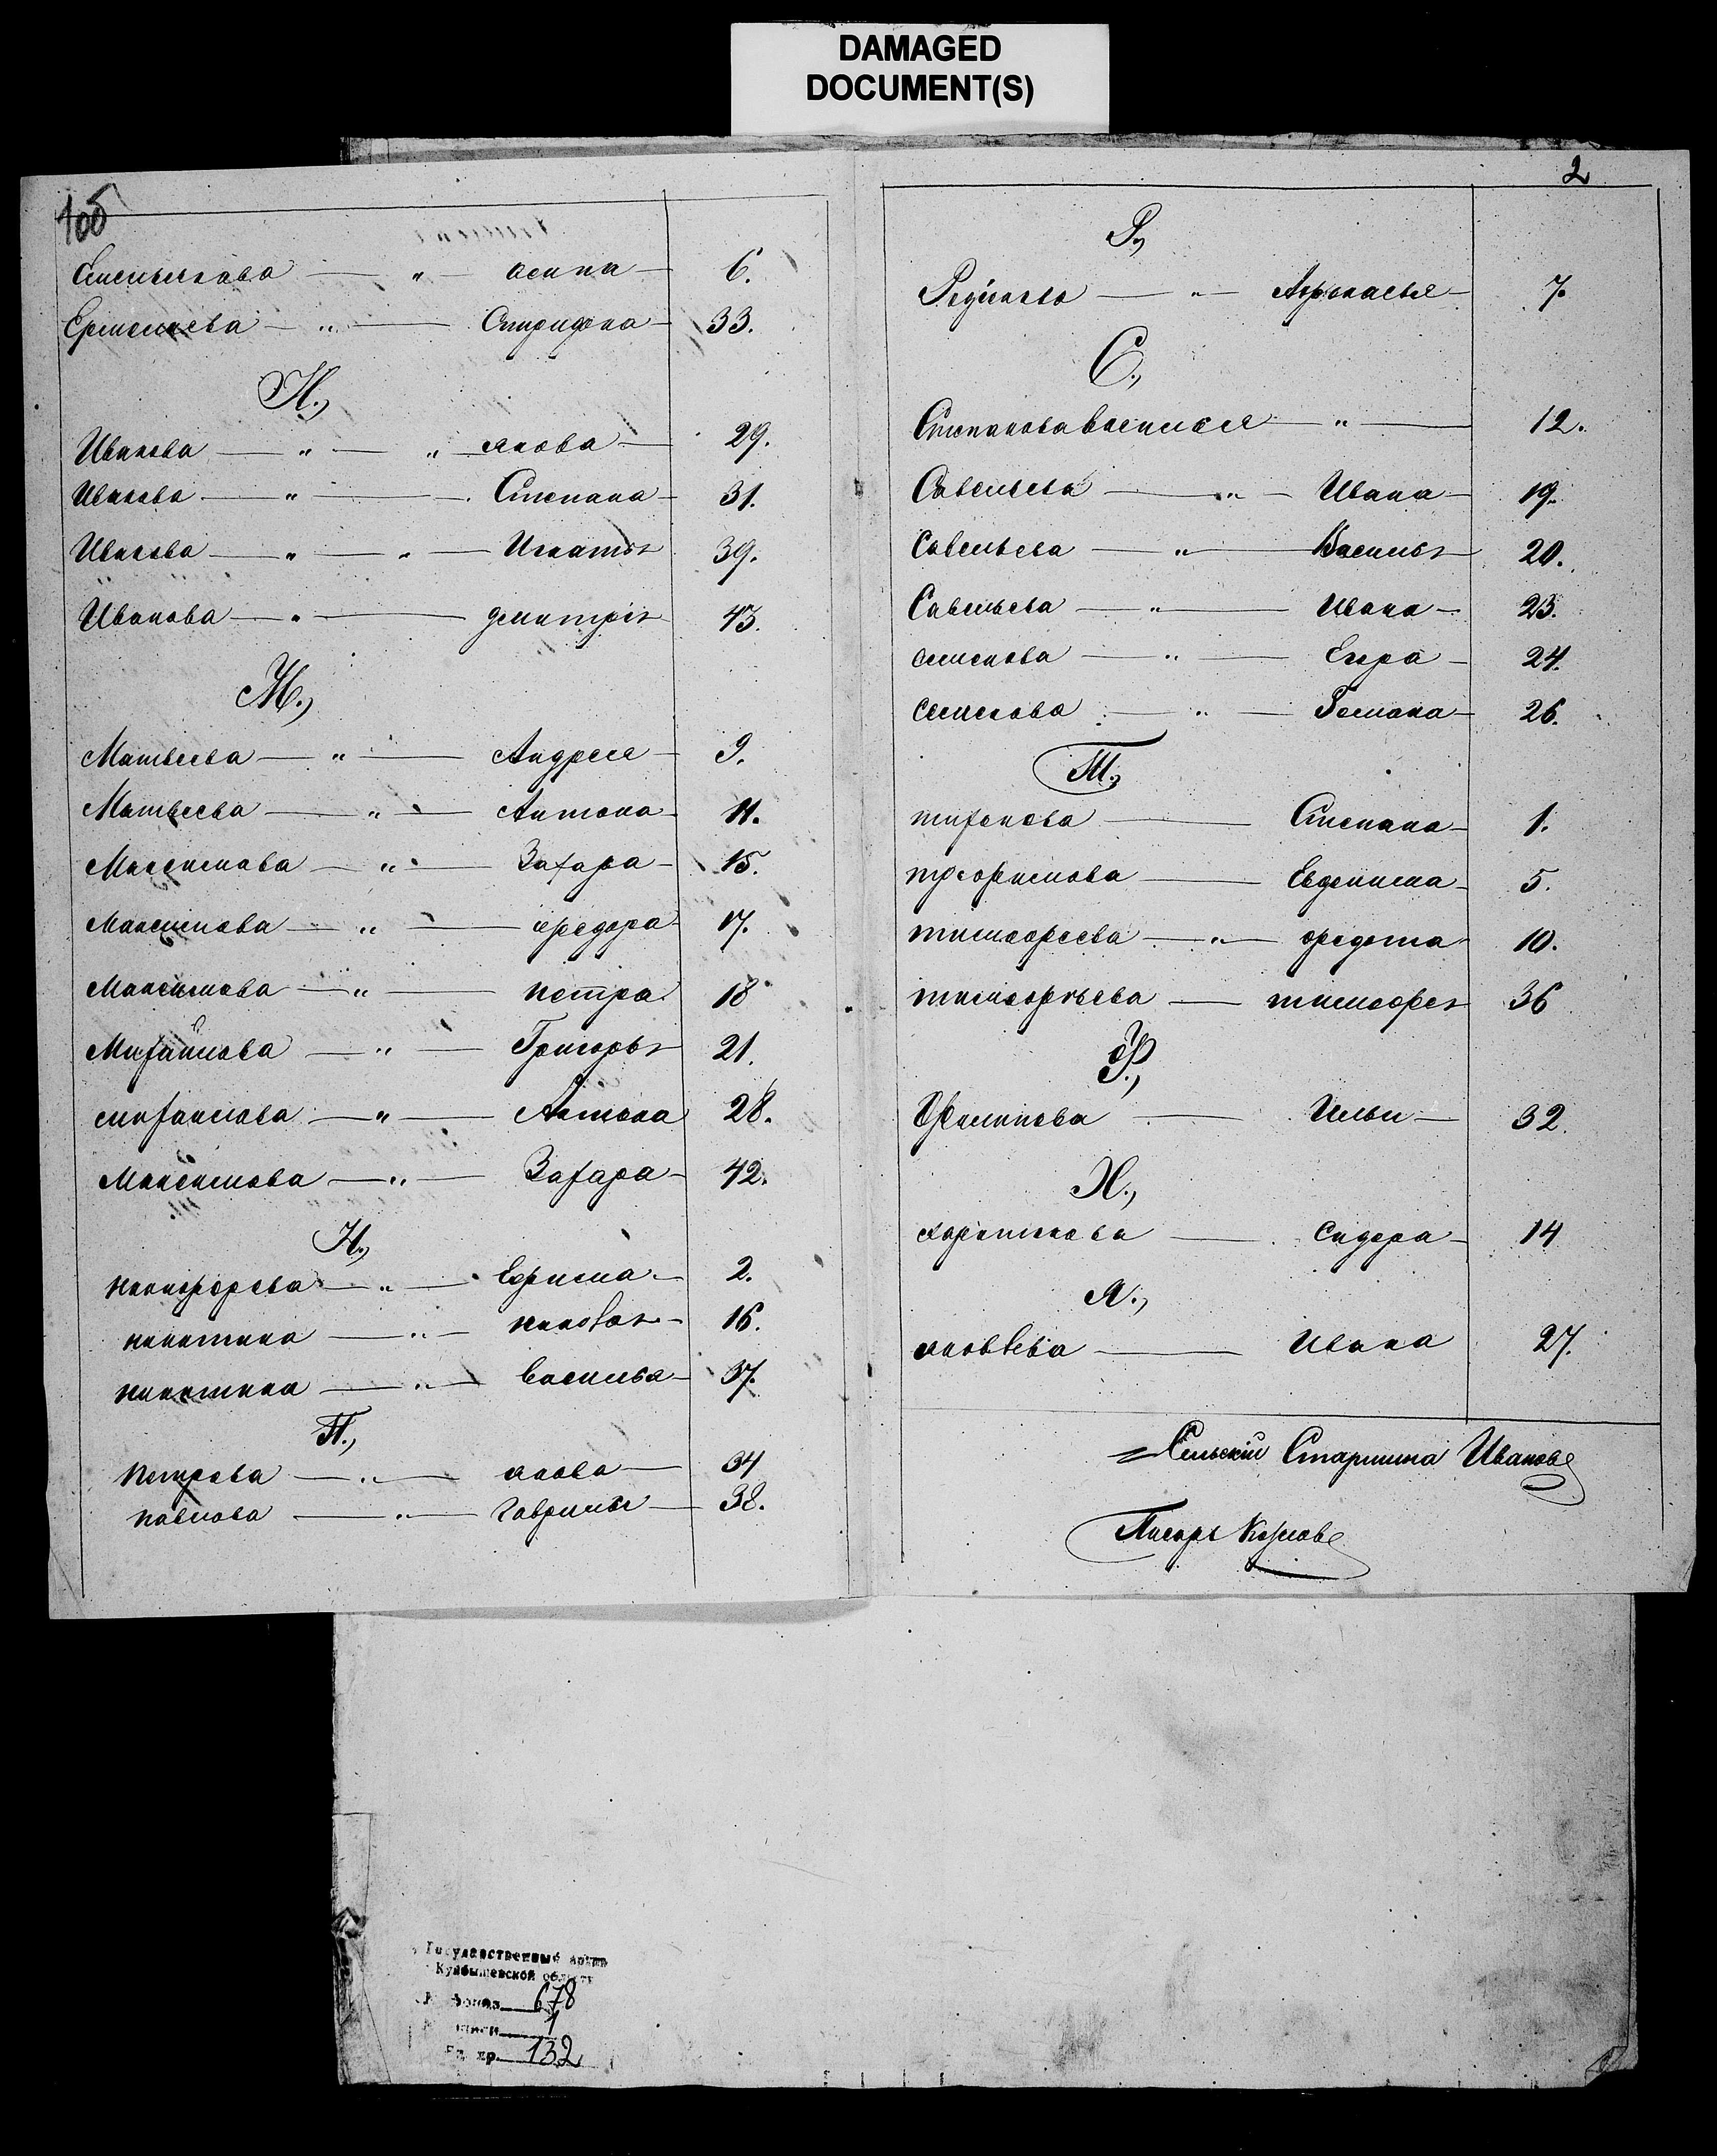 DAMAGED
DOCUMENT(S)
1об
Емельянова — " — осипа — 6.
Ермолаева — " — Спиридона — 33.
И.,
Иванова — " — " якова — 29.
Иванова — " — Степана — 31.
Иванова — " — " — Игнатья 39.
Иванова — " — дмитрея 43.
М.,
Матвеева — " — Андрея — 9.
Матвеева — " — Антона — 11.
Максимова — " — Захара — 15.
Максимова — " — федора 17.
Максимова — " — петра 18
Михайлова — " — Григорья 21.
михайлова — " — Антона 28.
Максимова — " — Захара — 42.
Н.,
никифорова — " — Ефима — 2.
никитина — " — 16.
никитина — " — василья — 37.
П.,
петрова — " — якова — 34
павлова — " — гаврилы — 38.
2
Р.,
Родионова — " — Афонасья — 7.
С.,
Степанова василея — " — 12.
Савельева — " — Ивана — 19.
Савельева — " — Василья — 20.
Савельева — " — Ивана — 23.
семенова — " — Егора — 24.
семенова — " — Романа — 26.
Т.,
тихонова — Степана — 1.
трофимова — Евдокима — 5.
тимофеева — " — федота — 10.
тимофеева — тимофея 36
Ф.,
Филипова — Ильи — 32.
Х.,
харитонова — Сидора — 14
Я.,
яковлева — Ивана 27.
Сельский Старшина Ивановъ
Писарь Козловъ
Государственный архив
Куйбышевской области
№ фонда 678
№ описи 1
Ед. хр. 132